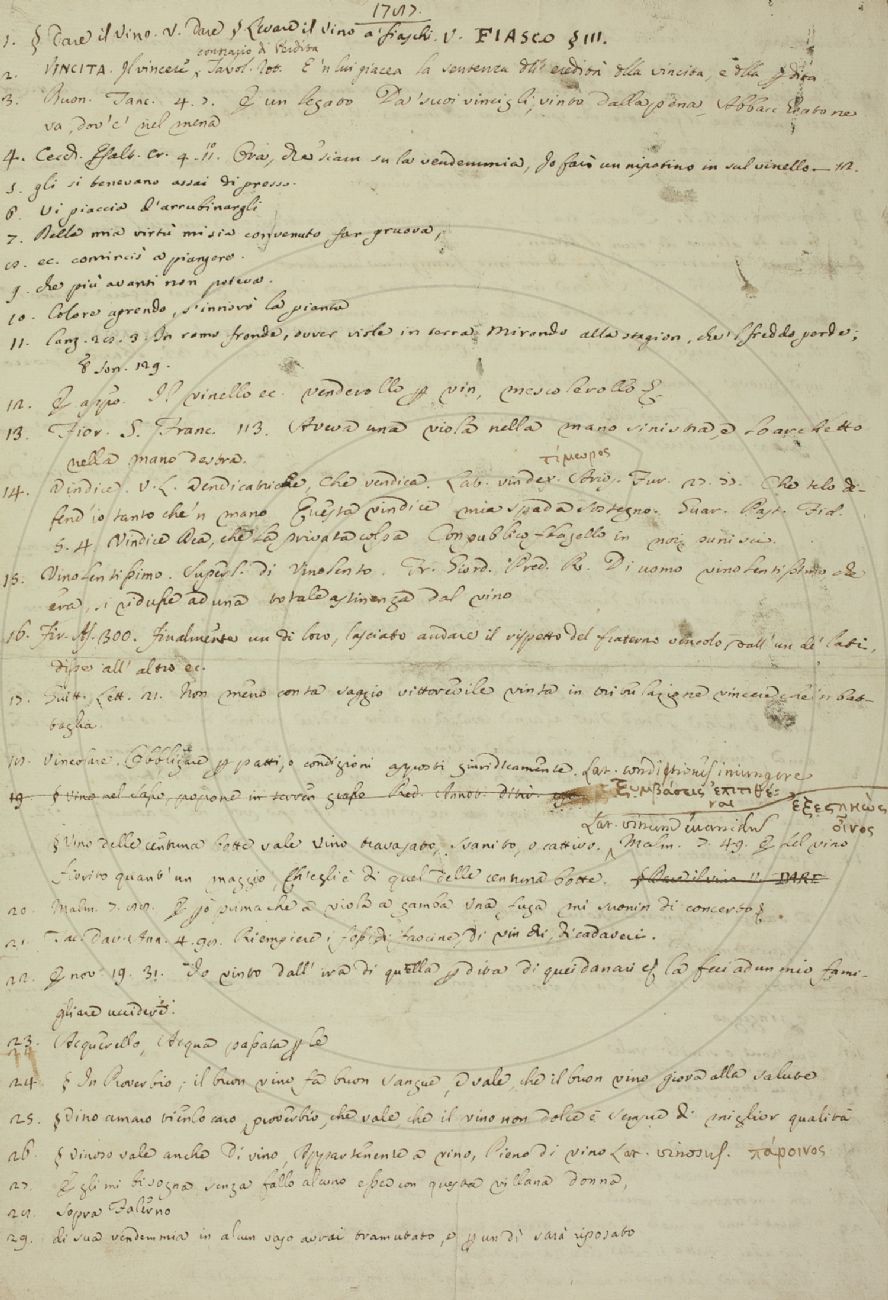 1. § Dare il vino. v. Dare § Levare il vino a' fiaschi. v. FIASCO § III.
contrario di Perdita
2. VINCITA. Il vincere. Tavol. Rit. E 'n lui giacea la sentenza della eredità della vincita, e della perdita
3. Buon. Tanc. 4. 7. E un legato Da' suoi vincigli, vinto dalla pena, Abbacchiato ne
va, dov' e' nel mena
4. Cecch. Esalt. cr. 4. 11. Ora, che siam su la vendemmia, Io farò un nipotino in sul vinello. — 12.
5. gli si tenevano assai di presso.
6. Vi piaccia d'arrubinargli
7. Bella mia virtù misia convenuto far pruova,
8. ec. cominciò a piangere.
9. che più avanti non poteva.
10. Colore aprendo, s'innovò la pianta
11. Canz. 28. 3. In ramo fronde, ovver viole in terra Mirando alla stagion, che 'l freddo perde;
E Son. 129.
12. E app. Il vinello ec. vendevollo per vin, mescolevollo
13. Fior. S. Franc. 113. Aveva una viola nella mano sinistra, e lo archetto
nella mano destra.
τίμωρος
14. Vindice. V. L. Vendicatrice, Che vendica. Lat. vindex. Ario. Fur. Che telo di-
fend' io tanto che 'n mano Questa vindice mia spada sostegno. Guar. Past. Fid.
5. 4. Vindice Dea, che la privata colpa Con pubblico flagello in noi punisci.
15. Vinolentissimo. Superl. di Vinolento. Fr. Giord. Pred. R. Di uomo vinolentissimo che
era, si ridusse ad una totale astinenza dal vino
16. Fir. As. 300. Finalmente un di loro, lasciato andare il rispetto del fraterno vincolo, dall' un de' lati,
disse all' altro ec.
17. Guitt. Lett. 21. Non meno conta saggio vittorevile vinta in tribulazione vincere, che 'n bat-
taglia
18. Vincolare. Obbligare per patti, o condizioni apposti giuridicamente. Lat. conditionis iniungere
Ξυμβάσεις ἐπιτιθέ-
ναι
19. § Vino nel popone in terren grasso Red. Annot. Ditir.
Lat. vinum evanidus
ἐξεστηκὼς
οἶνος
§ Vino delle centuna botte vale Vino travasato, Svanito, o cattivo. Malm. 7. 49. E bel vino
Fiorito quant' un maggio, Ch' egli è di quel delle centuna botte. § Dare il vino v. DARE
20. Malm. E io prima che a viola a gamba una fuga mi suonin di concerto
21. Tac. Dav. Ann. 4. Riempiere i fossi di fascine, di vin chi, di cadaveri.
22. E nov. 19. 31. Io vinto dall' ira di quella perdita di quei danari la feci ad un mio fami-
gliare uccidere.
23. Acquerello, Acqua passata per le
24. § In Proverbio; il buon vino fa buon sangue, e vale, che il buon vino giova alla salute
25. § Vino amaro tienlo caro, proverbio, che vale che il vino non dolce è sempre di miglior qualità
26. § Vinoso vale anche Di vino, Appartenente a vino, Pieno di vino Lat. vinosus. πάροινος
27. Egli mi bisogna senza fallo alcuno esser con questa villana donna,
28. Sopra Falerno
29. di sua vendemmia in alcun vaso avrai tramutato, e per un dì sarà riposato